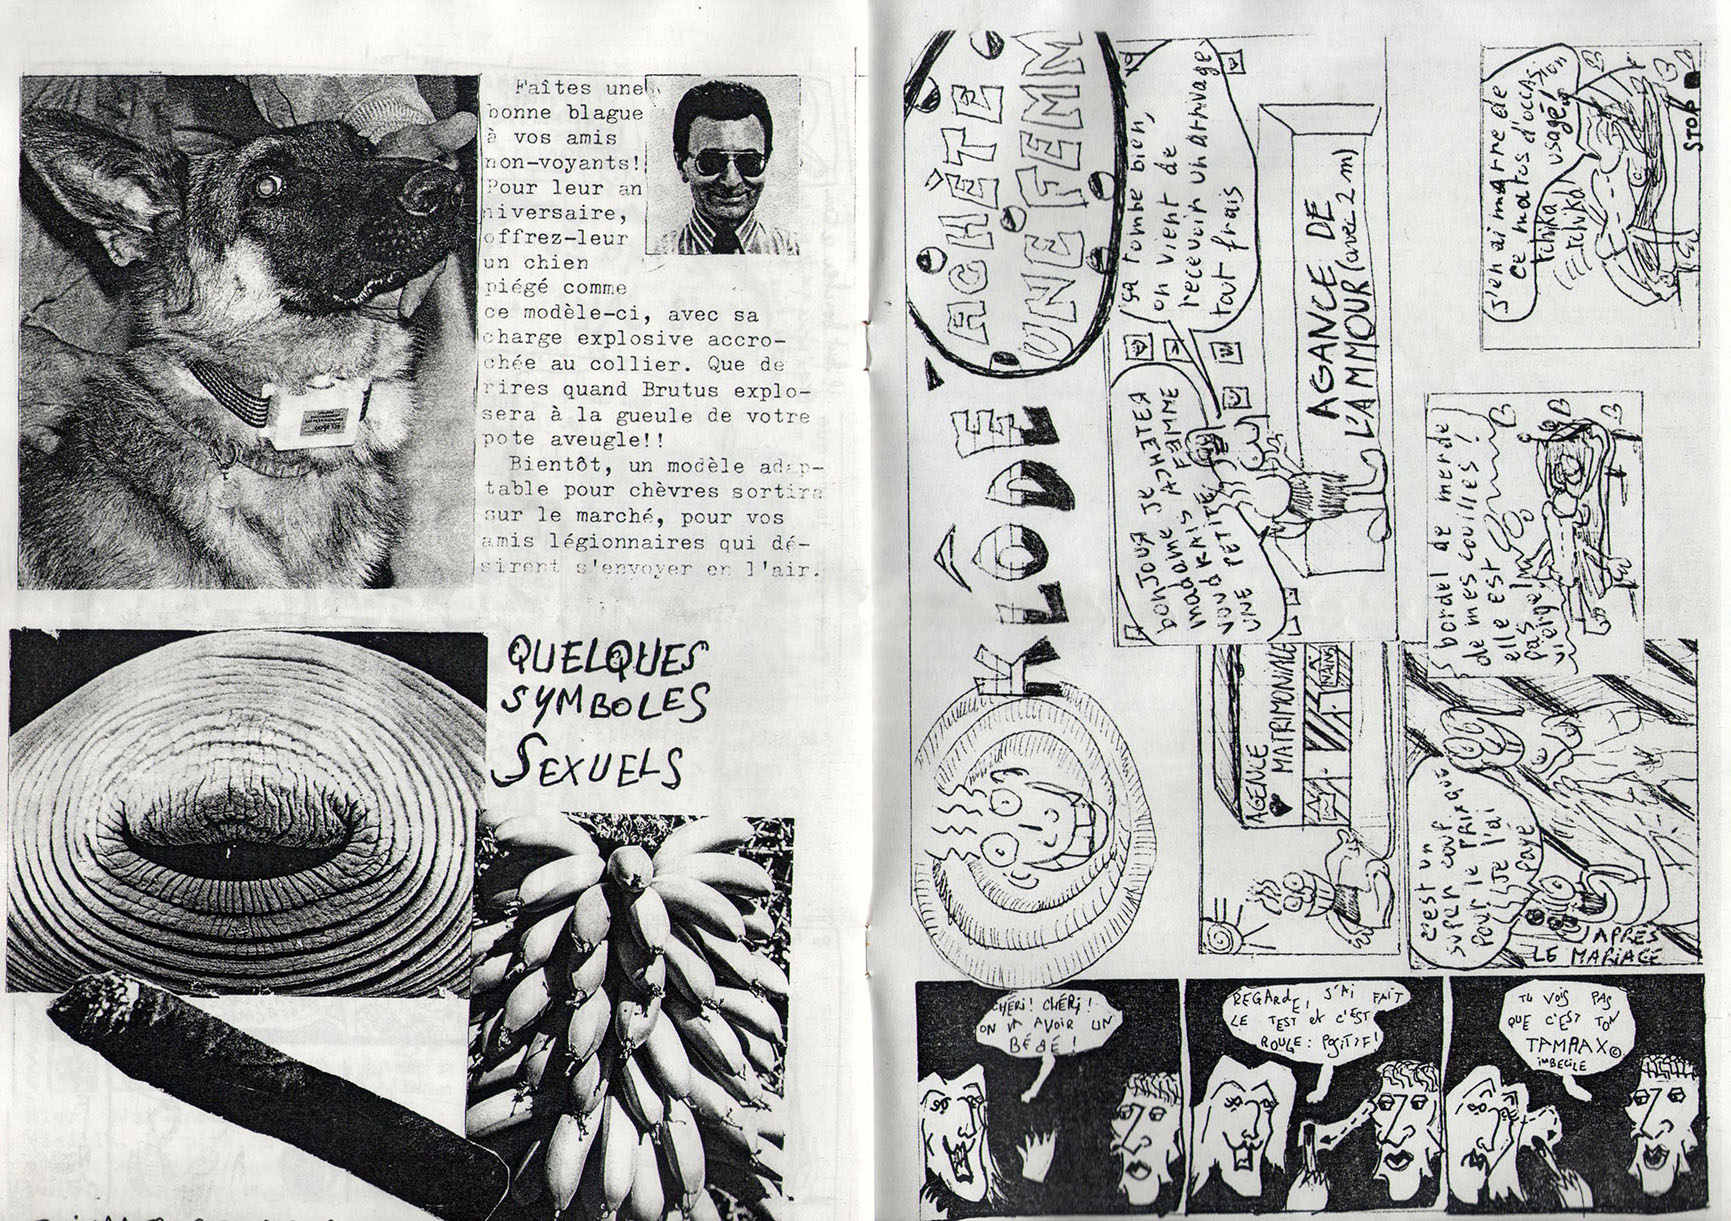 Faîtes une
bonne blague
à vos amis
non-voyants!
Pour leur an
niversaire,
offrez-leur
un chien
piégé comme
ce modèle-ci, avec sa
charge explosive accro-
chée au collier. Que de
rires quand Brutus explo-
sera à la gueule de votre
pote aveugle!!
Bientôt, un modèle adap-
table pour chèvres sortira
sur le marché, pour vos
amis légionnaires qui dé-
sirent s'envoyer en l'air.
QUELQUES
SYMBOLES
SEXUELS
KLÔDE
ACHÈTE
UNE FEMM
AGENCE
MATRIMONIALE
bonJOUR je
madame
UNE PETITE FEMME
ça tombe bien,
on vient de
recevoir un arrivage
tout frais
AGANCE DE
L'AMMOUR (avec 2 m)
APRÈS
LE MARIAGE
c'est un
super coup
pour le prix que
je l'ai
payé
bordel de merde
de mes couilles!
elle est
pas
vierge!
j'en ai marre de
ce matos d'occasion
usagé!
tchika
tchika
STOP
CHÉRI! CHÉRI!
ON VA AVOIR UN
BÉBÉ!
REGARDE, J'AI FAIT
LE TEST et C'EST
ROUGE: POSITIF!
TU VOIS PAS
QUE C'EST TON
TAMPAX©
imBECILE